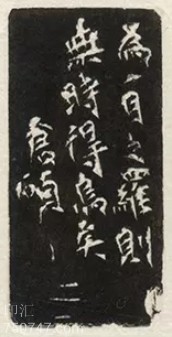 為一目之羅則
無時得鳥矣
倉碩
印汇